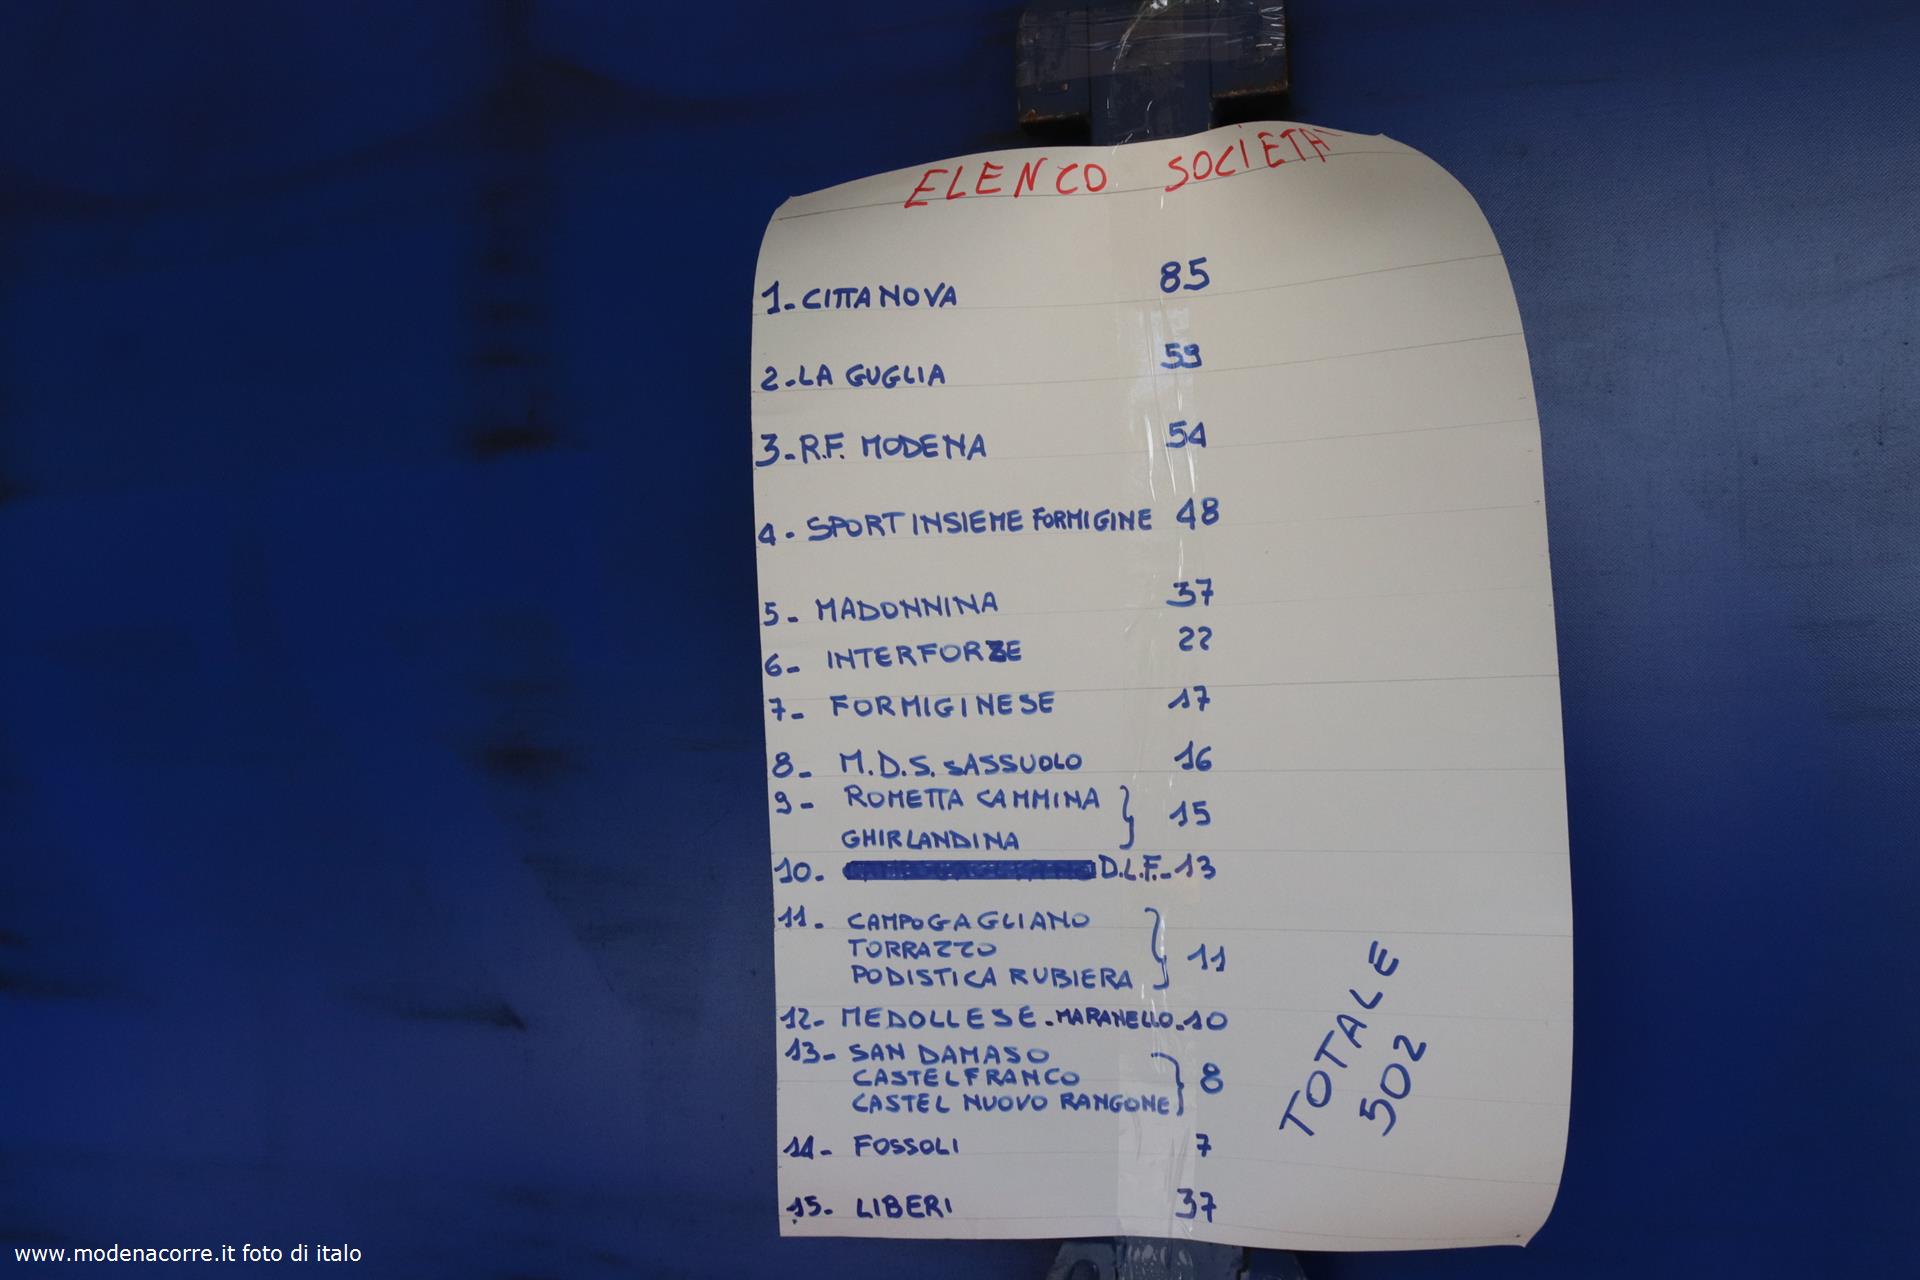 ELENCO SOCIETÀ
1. CITTANOVA 85
2. LA GUGLIA 59
3. R.F. MODENA 54
4. SPORT INSIEME FORMIGINE 48
5. MADONNINA 37
6. INTERFORZE 22
7. FORMIGINESE 17
8. M.D.S. SASSUOLO 16
9. ROMETTA CAMMINA
GHIRLANDINA } 15
10. D.L.F. 13
11. CAMPOGAGLIANO
TORRAZZO
PODISTICA RUBIERA } 11
12. MEDOLLESE - MARANELLO - 10
13. SAN DAMASO
CASTELFRANCO
CASTEL NUOVO RANGONE } 8
14. FOSSOLI 7
15. LIBERI 37
TOTALE
502
www.modenacorre.it foto di italo